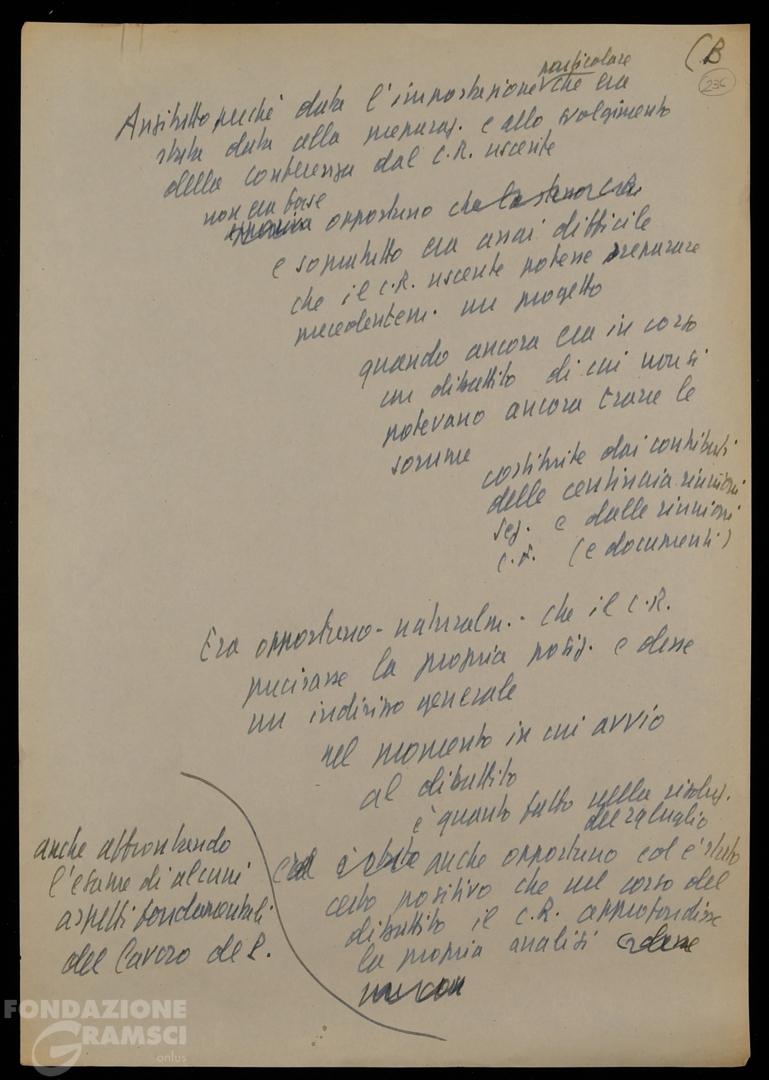 (B
236
particolare
Anzitutto perché data l'impostazione che era
stata data alla preparaz. e allo svolgimento
della conferenza dal C.R. uscente
non era forse
opportuno che la stessa
e soprattutto era assai difficile
che il C.R. uscente potesse preparare
precedentem. un progetto
quando ancora era in corso
un dibattito di cui non si
potevano ancora trarre le
somme
costituite dai contributi
delle centinaia riunioni
sez. e dalle riunioni
c.f. (e documenti)
Era opportuno - naturalm. - che il C.R.
precisasse la propria posiz. e desse
un indirizzo generale
nel momento in cui avviò
al dibattito
è quanto fatto nella risoluz.
del 29 luglio
ed è stato anche opportuno ed è stato
certo positivo che nel corso del
dibattito il C.R. approfondisse
la propria analisi e desse
anche affrontando
l'esame di alcuni
aspetti fondamentali
del lavoro del P.
FONDAZIONE
GRAMSCI
onlus